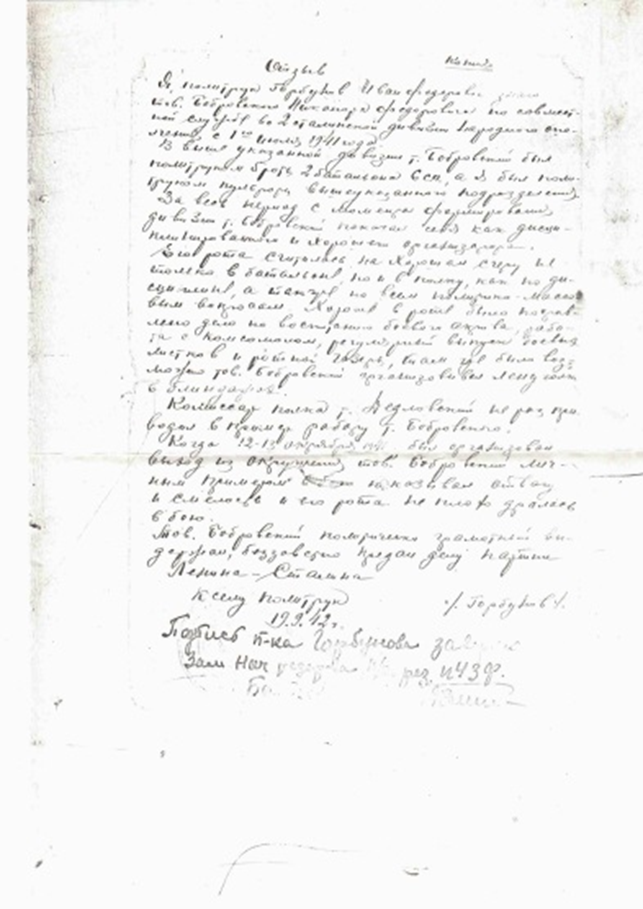 Отзыв Копия
Я, политрук Горбунов Иван Федорович знаю
тов. Бобровского Никанора Федоровича по совмест-
ной службе во 2 сталинской дивизии народного опо-
лчения с 1го июля 1941 года
В выше указанной дивизии т. Бобровский был
политруком роты 2 батальона 6 сп, а я был поли-
труком пульроты вышеуказанного подразделения
За весь период с момента формирования
дивизии т. Бобровский показал себя как дисци-
плинированный и хороший организатор.
Его рота считалась на хорошем счету не
только в батальоне, но и в полку, как по ди-
сциплине, а также по всем политико-массо-
вым вопросам. Хорошо в роте было постав-
лено дело по воспитанию боевого актива, рабо-
та с комсомолом, регулярный выпуск боевых
листков и ротной газеты, там где было воз-
можно тов. Бобровский организовывал
в блиндажах.
Комиссар полка т. не раз при-
водил в пример работу т. Бобровского.
Когда 12-13 октября был организован
выход из окружения тов. Бобровский лич-
ным примером показывал отвагу
и смелость и его рота не плохо дралась
в бою.
Тов. Бобровский политически грамотный вы-
держан, беззаветно предан делу партии
Ленина-Сталина
К сему политрук /. Горбунов /.
19.9.42г.
Подпись п-ка Горбунова заверяю
Зам Нач резерва рез.